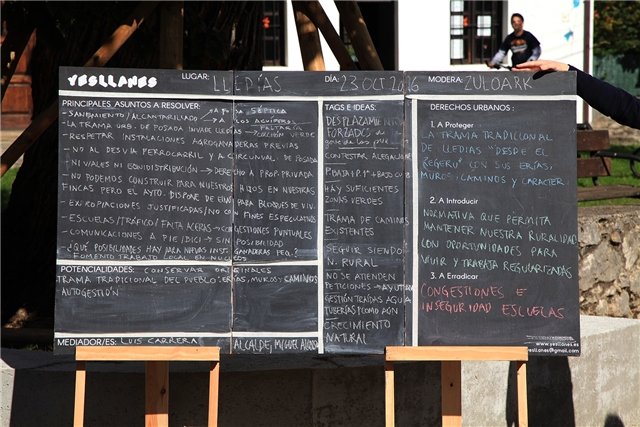 YESLLANES
LUGAR: LLEDÍAS
DÍA: 23 OCT 2016
MODERA: ZULOARK
PRINCIPALES ASUNTOS A RESOLVER:
-SANEAMIENTO/ALCANTARILLADO → A FOSA SÉPTICA
A LOS ACUÍFEROS
-LA TRAMA URB. DE POSADA INVADE LLEDÍAS → FALTARÍA PORCIÓN VERDE
-RESPETAR INSTALACIONES AGROGANADERAS PREVIAS
-NO AL DESVÍO FERROCARRIL Y A CIRCUNVAL. DE POSADA
NI VALES NI EQUIDISTRIBUCIÓN → DERECHO A PROP. PRIVADA
-NO PODEMOS CONSTRUIR PARA NUESTROS HIJOS EN NUESTRAS
FINCAS PERO EL AYTO. DISPONE DE ELLO PARA BLOQUES DE VIV.
-EXPROPIACIONES JUSTIFICADAS/NO CON FINES ESPECULATIVOS
-ESCUELAS/TRÁFICO/FALTA ACERAS → CONGESTIONES PUNTUALES
-COMUNICACIONES A PIE/BICI → SIN POSIBILIDAD
¿QUÉ POSIBILIDADES HAY PARA NUEVAS INST. GANADERAS PEQ.?
-FOMENTO TRABAJO LOCAL EN NÚCLEOS
POTENCIALIDADES: CONSERVAR ORIGINALES
TRAMA TRADICIONAL DEL PUEBLO: ERÍAS, MUROS, CAMINOS
AUTOGESTIÓN
MEDIADOR/ES: LUIS CARRERA
ALCALDE, MIGUEL ALONSO
TAGS E IDEAS:
DESPLAZAMIENTOS
FORZADOS a
CONTESTAR ALEGACIONES
HAY SUFICIENTES
ZONAS VERDES
TRAMA DE CAMINOS
EXISTENTES
SEGUIR SIENDO
N. RURAL
NO SE ATIENDEN
PETICIONES → AYUNT.
GESTIÓN TRAÍDAS AGUA
TUBERÍAS ¿COMO AÚN
CRECIMIENTO
NATURAL
DERECHOS URBANOS:
1. A Proteger
LA TRAMA TRADICIONAL
DE LLEDÍAS "DESDE EL
REGERU" CON SUS ERÍAS,
MUROS, CAMINOS Y CARÁCTER.
2. A Introducir
NORMATIVA QUE PERMITA
MANTENER NUESTRA RURALIDAD
CON OPORTUNIDADES PARA
VIVIR Y TRABAJAR REGULARIZADAS
3. A Erradicar
CONGESTIONES E
INSEGURIDAD ESCUELAS
www.yesllanes.es
yesllanes@gmail.com